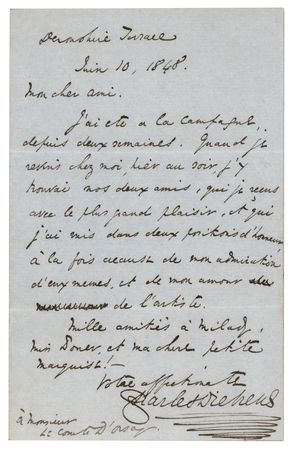 Devonshire Terrace
Juin 10, 1848.
Mon cher ami.
J'ai été a la campagne,
depuis deux semaines. Quand je
revins chez moi, hier au soir j'y
trouvai nos deux amis, que je reçus
avec le plus grand plaisir, et qui
j'ai mis dans deux positions d'honneur,
à la fois à cause de mon admiration
d'eux memes, et de mon amour
de l'artiste.
Mille amitiés à milady,
miss Power, et ma chere petite
marquise!—
Votre affectionate
Charles Dickens
à Monsieur
Le Comte D'orsay